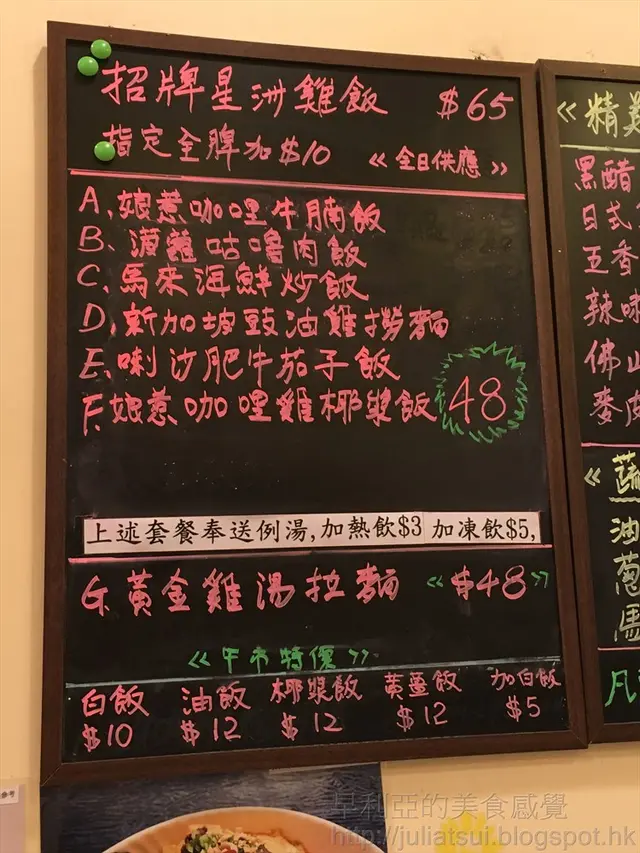 招牌星洲雞飯 $65
指定全髀加$10 《全日供應》
A. 娘惹咖哩牛腩飯
B. 菠蘿咕嚕肉飯
C. 馬來海鮮炒飯
D. 新加坡豉油雞撈麵
E. 喇沙肥牛茄子飯
F. 娘惹咖哩雞椰漿飯 48
上述套餐奉送例湯,加熱飲$3 加凍飲$5,
G. 黃金雞湯拉麵 《$48》
《午市特價》
白飯 油飯 椰漿飯 黃薑飯 加白飯
$10 $12 $12 $12 $5
《精
黑醋
日式
五香
辣味
佛山
麥皮
《蔬
油
蔥
馬
凡
參考
早利亞的美食感覺
http://juliatsui.blogspot.hk